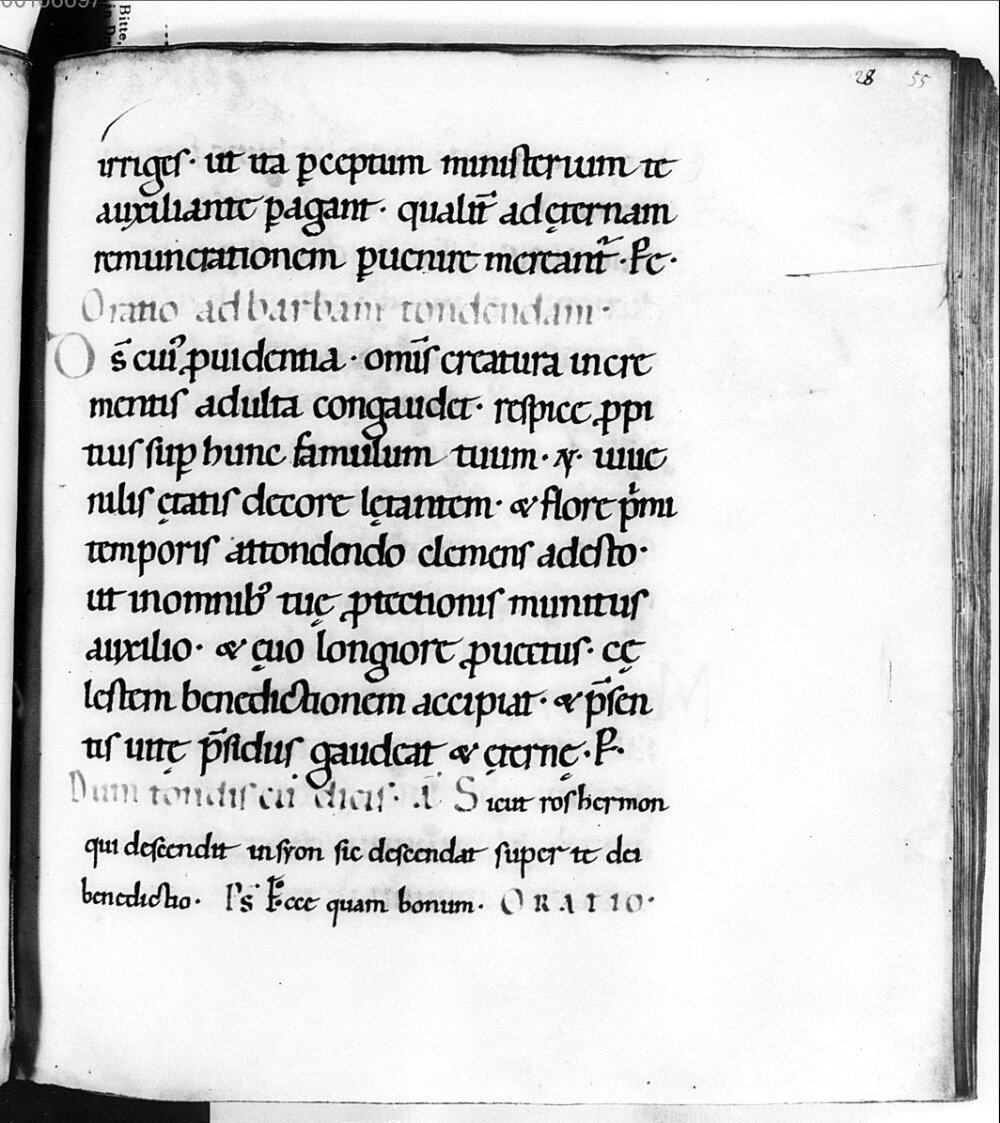 28 55
irriges· ut ita ꝑceptum ministerium te
auxiliante ꝑagant· qualit̄ ad ęternam
remunerationem ꝑuenire mereant᷑·
Oratio ad barbam tondendam·
O s̄ cui᷒ ꝓuidentia· om̄is creatura incre
mentis adulta congaudet· respice ꝓpi
tius suꝑ hunc famulum tuum· iuue
nilis ętatis decore lętantem· & flore pⁱmi
temporis attondendo clemens adesto·
ut in omnibꝰ tuę ꝓtectionis munitus
auxilio· & ęuo longiore ꝓuectus· cę
lestem benedictionem accipiat· & p̄sen
tis uitę p̄sidiis gaudeat & ęternę· P·
Dum tondis eū dicis· A Sicut ros hermon
qui descendit in syon sic descendat super te dei
benedictio· Ps̄ Ecce quam bonum· ORATIO·
Bitte,